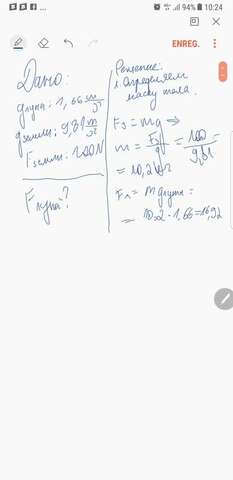 10:24
ENREG.
Дано:
gлуна: 1,66 m/s²
gземли: 9,81 m/s²
Fземли: 100N
Fлуна?
Решение:
1. Определяем
массу тела.
Fз = mg ⇒
m = Fз/g = 100/9,81 =
= 10,2 кг
Fл = m gлуна =
= 10,2 · 1,66 = 16,92